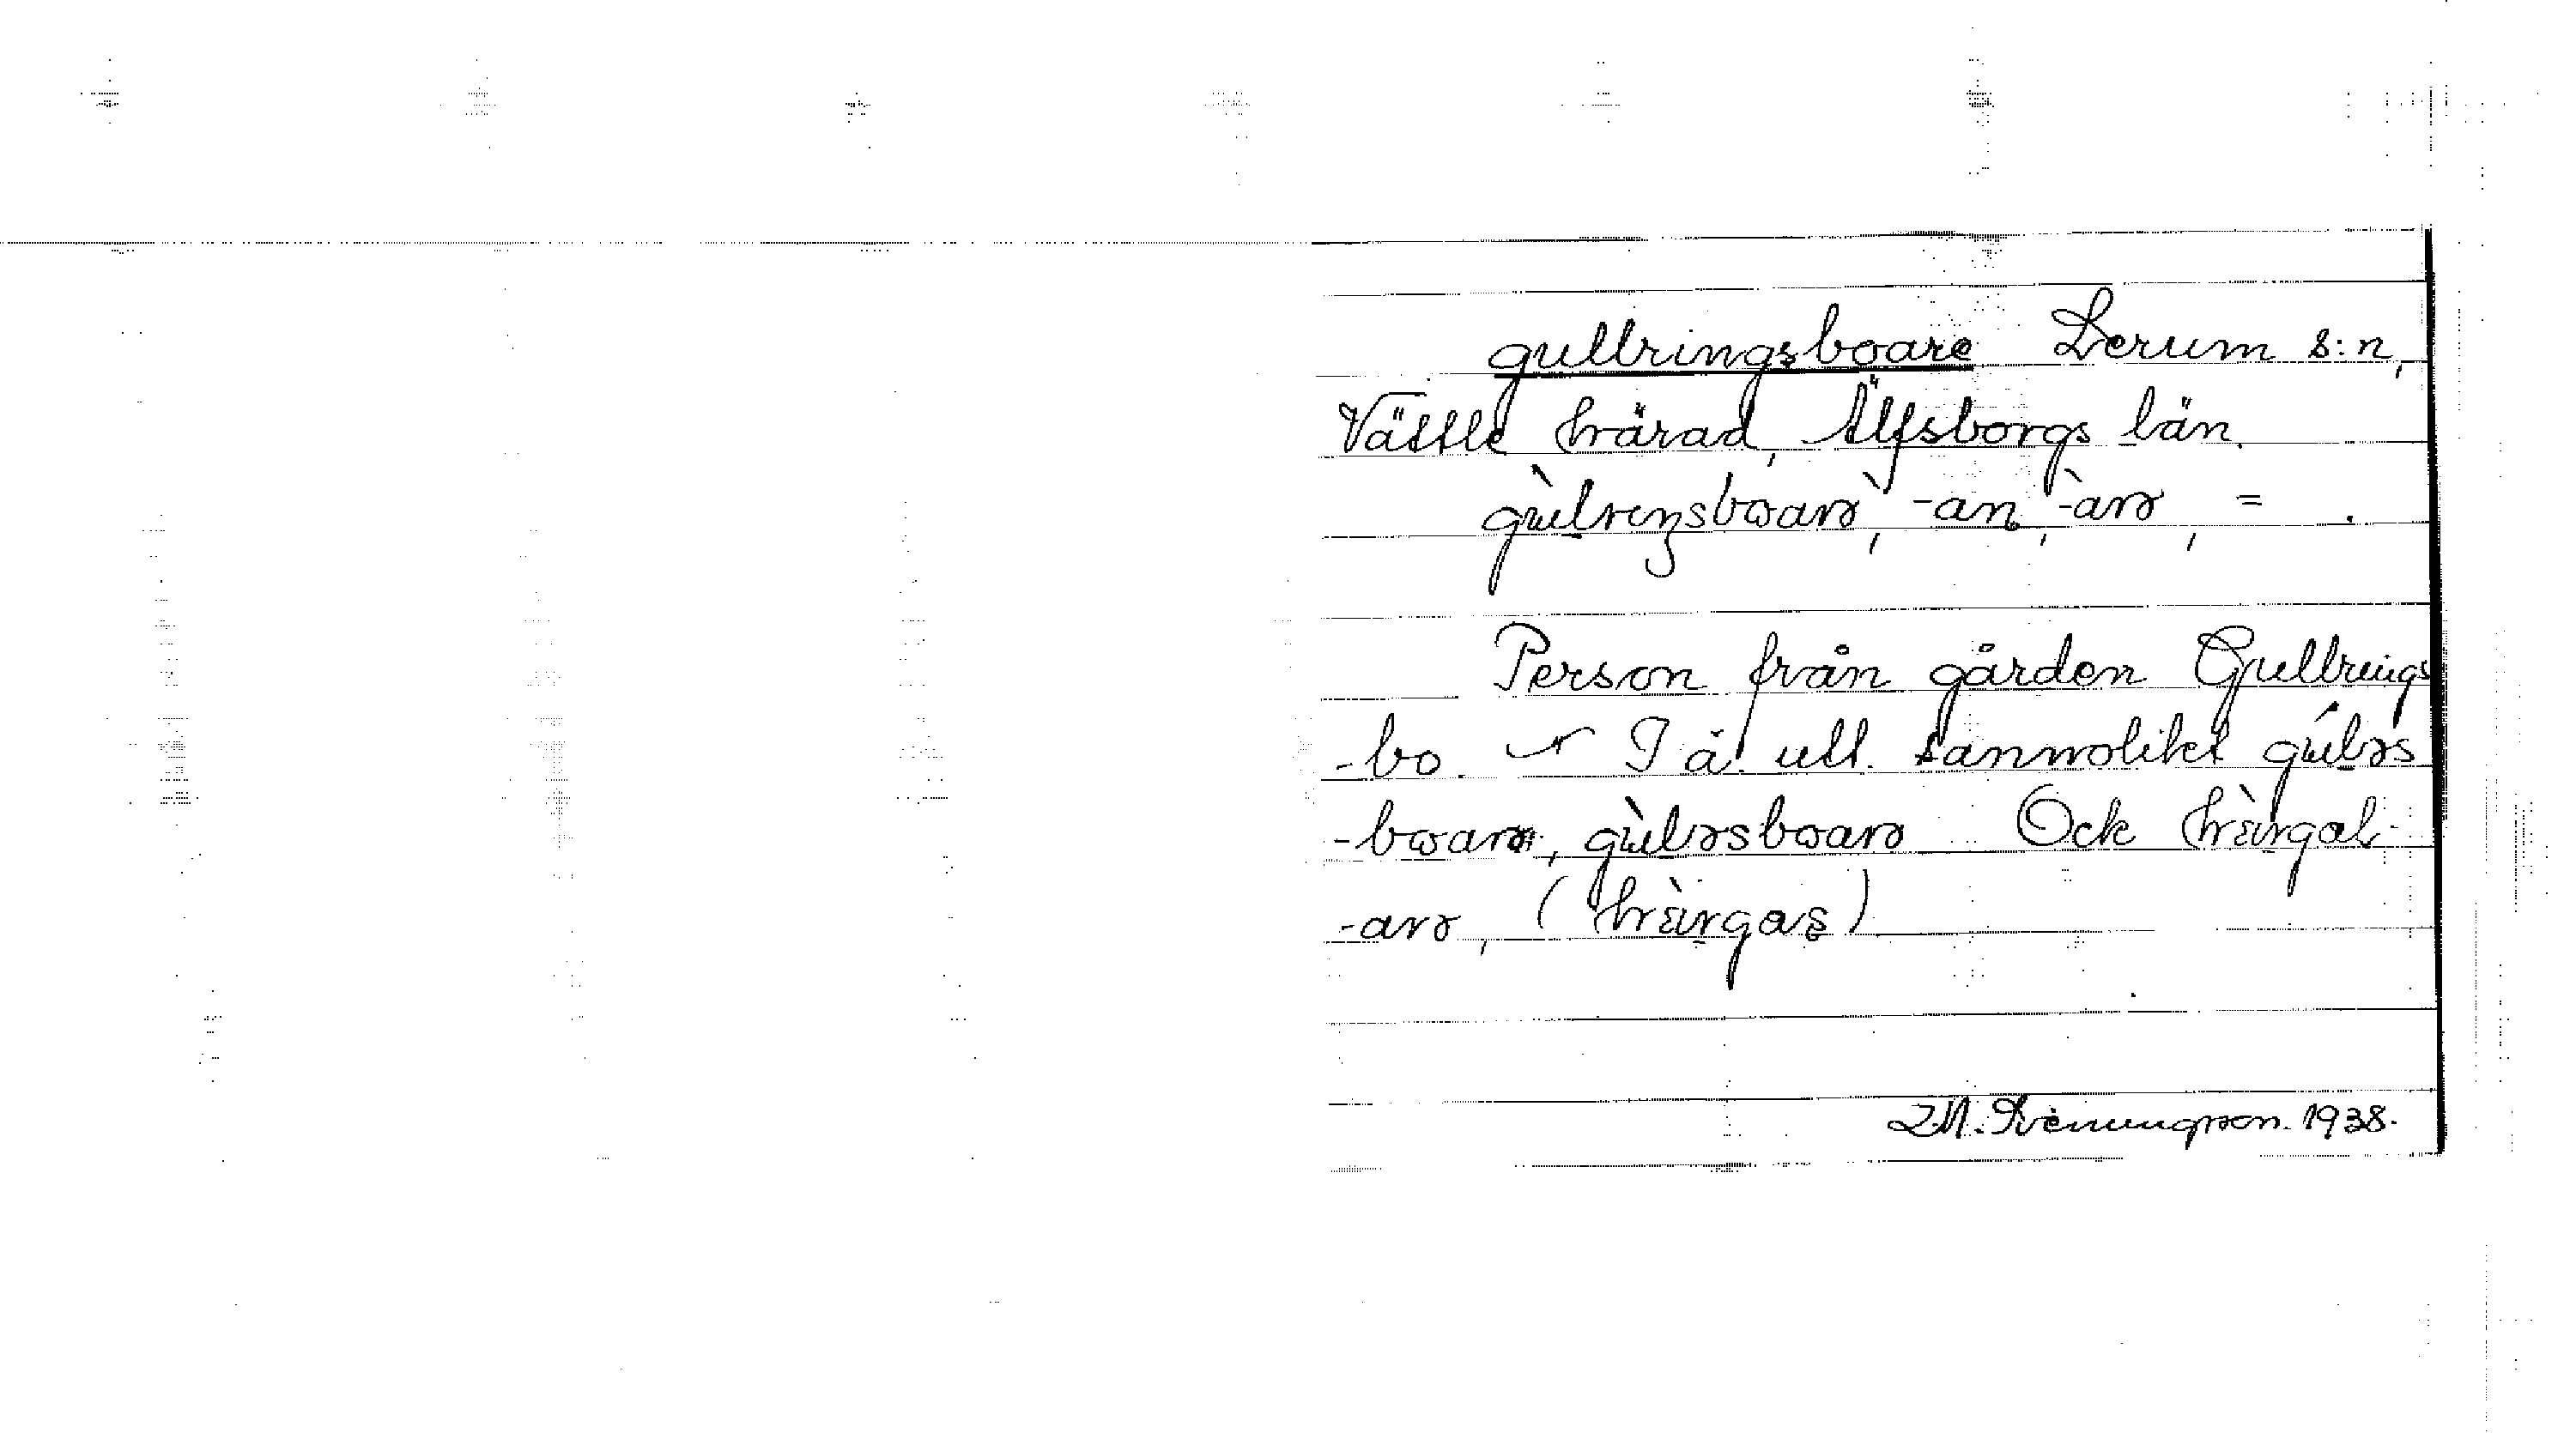 gullringsboare Lerum s:n,
Vättle härad, Älfsborgs län.
gùlreŋsboarə, -an, -arə, =.
Person från gården Gullrings
-bo. I ä. utt. sannolikt gúləs
-boarə, gùləsboarə Ock
-arə,
1938.